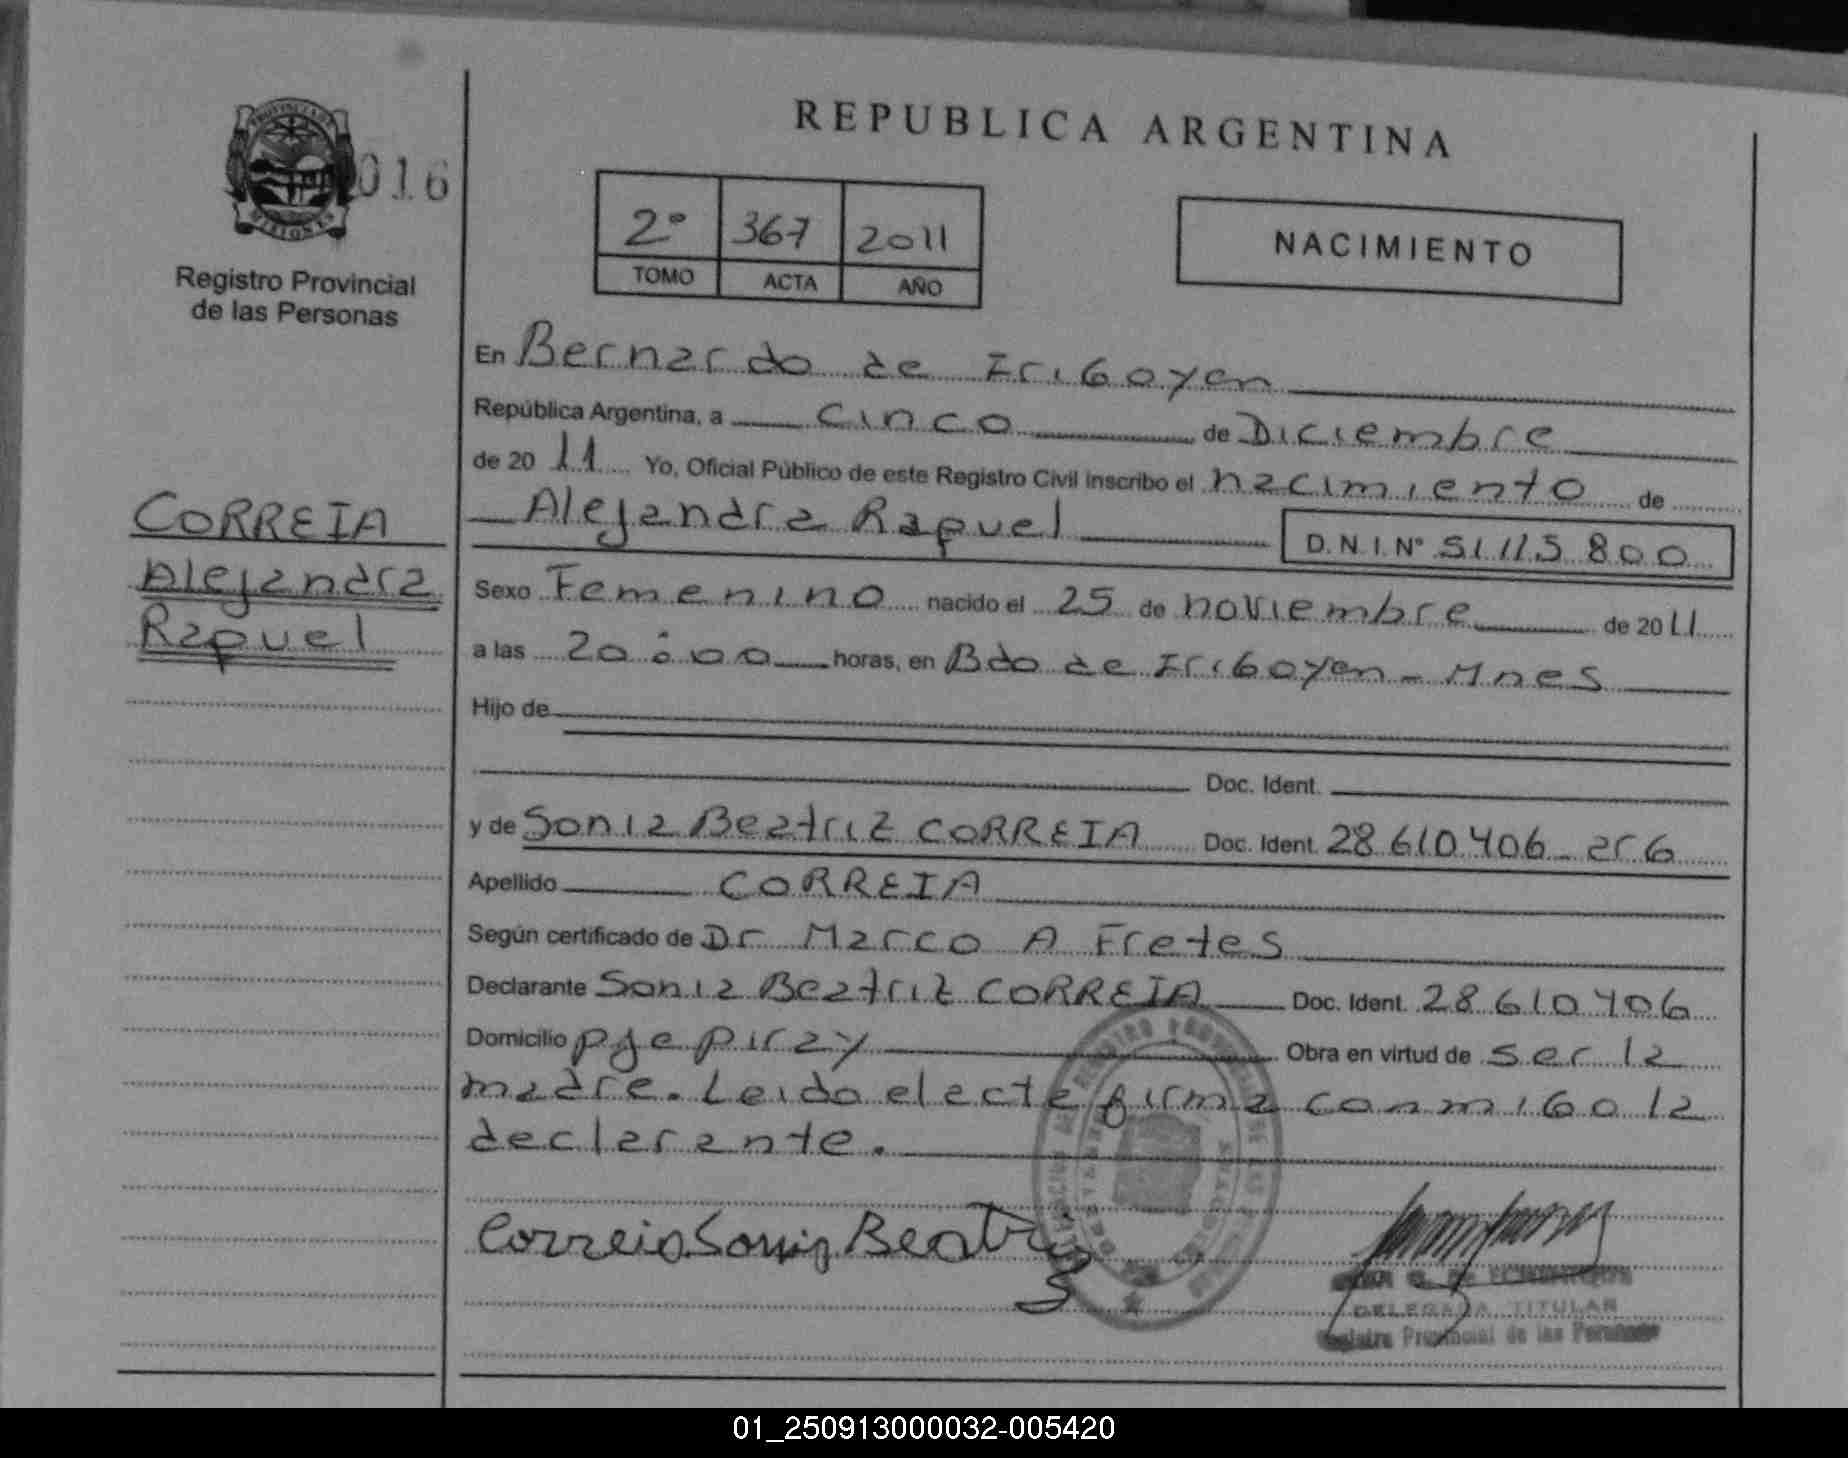 REPUBLICA ARGENTINA
PROVINCIA DE
MISIONES
016
Registro Provincial
de las Personas
2° 367 2011
TOMO ACTA AÑO
NACIMIENTO
En Bernardo de Irigoyen
República Argentina, a cinco de Diciembre
de 2011 Yo, Oficial Público de este Registro Civil inscribo el nacimiento de
Alejandra Raquel D.N.I. Nº 51.115.800
CORREIA
Alejandra
Raquel
Sexo Femenino nacido el 25 de noviembre de 2011
a las 20:00 horas, en Bdo de Irigoyen - Mnes
Hijo de
Doc. Ident.
y de Sonia Beatriz CORREIA Doc. Ident. 28.610.406 - arg
Apellido CORREIA
Según certificado de Dr Marco A Fretes
Declarante Sonia Beatriz CORREIA Doc. Ident. 28.610.406
Domicilio pje piray Obra en virtud de ser la
madre. Leido el acta firma conmigo la
declarante.
Correia Sonia Beatriz
DELEGADA TITULAR
Registro Provincial de las Personas
01_250913000032-005420